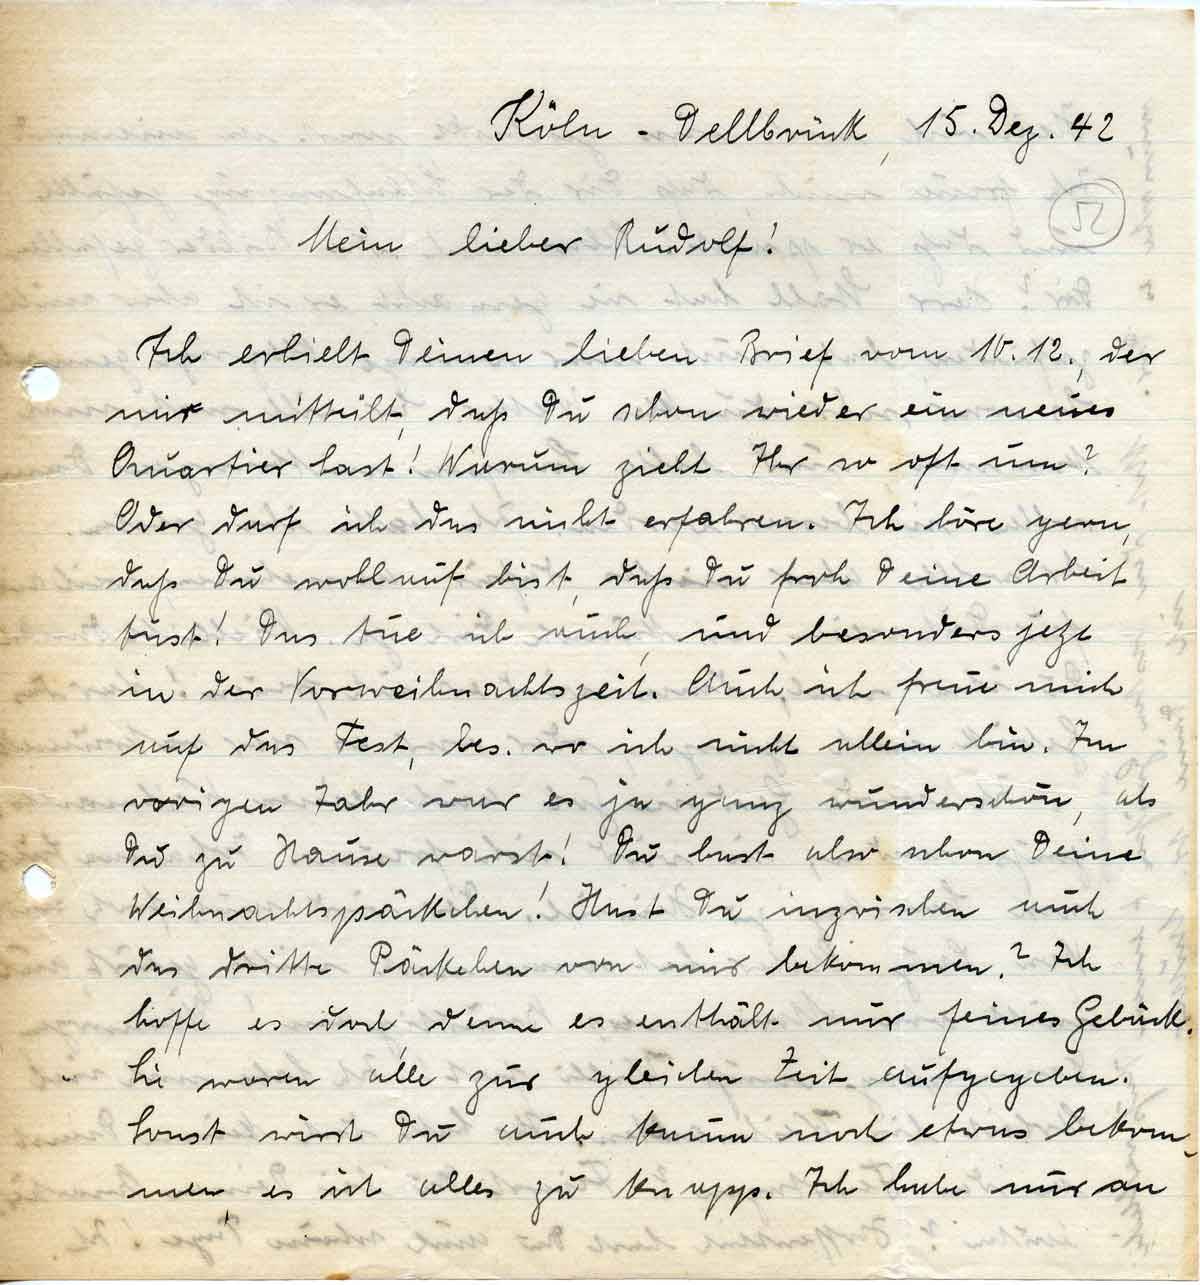 Köln - Dellbrück, 15. Dez. 42
52
Mein lieber Rudolf!
Ich erhielt Deinen lieben Brief vom 10.12., der
mir mitteilt, daß Du schon wieder ein neues
Quartier hast! Warum zieht Ihr so oft um?
Oder darf ich das nicht erfahren. Ich höre gern,
daß Du wohlauf bist, daß Du froh Deine Arbeit
tust! Das tue ich auch, und besonders jetzt
in der Vorweihnachtszeit. Auch ich freue mich
auf das Fest, bes. wo ich nicht allein bin. Im
vorigen Jahr war es ja ganz wunderschön, als
Du zu Hause warst! Du hast also schon Deine
Weihnachtspäckchen! Hast Du inzwischen auch
das dritte Päckchen von mir bekommen? Ich
hoffe es doch, denn es enthält nur feines Gebäck.
Sie waren alle zur gleichen Zeit aufgegeben.
Sonst wirst Du auch kaum noch etwas bekom-
men, es ist alles zu knapp. Ich habe nur an